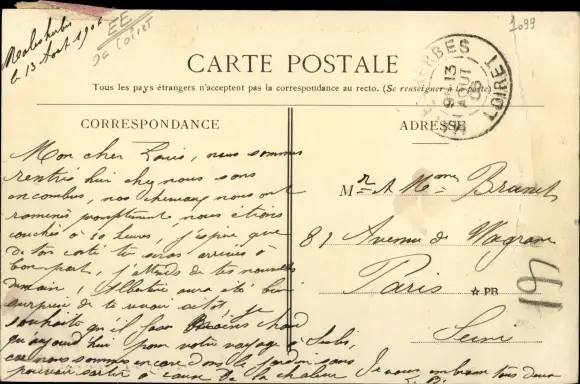 Malesherbes
le 13 Aout 1906
EE
DE LOIRET
1099
CARTE POSTALE
Tous les pays étrangers n'acceptent pas la correspondance au recto. (Se renseigner à la poste)
CORRESPONDANCE
ADRESSE
HERBES
LOIRET
13
AOUT
Mon cher Louis, nous sommes
rentrés hier chez nous sans
encombres, nos chevaux nous ont
ramenés promptement, nous étions
couchés à 10 heures, j'espère que
de ton coté tu es arrivé à
bon port, j'attends de tes nouvelles
demain, Albertine aura été bien
surprise de te voir sitôt, je
souhaite qu'il fasse moins chaud
qu'aujourd'hui pour votre voyage à
car nous sommes encore dans le jardin sans
pouvoir sortir à cause de la chaleur Je vous embrasse tous deux
Mr A. Mme
81 Avenue de Wagram
Paris
PR
Seine